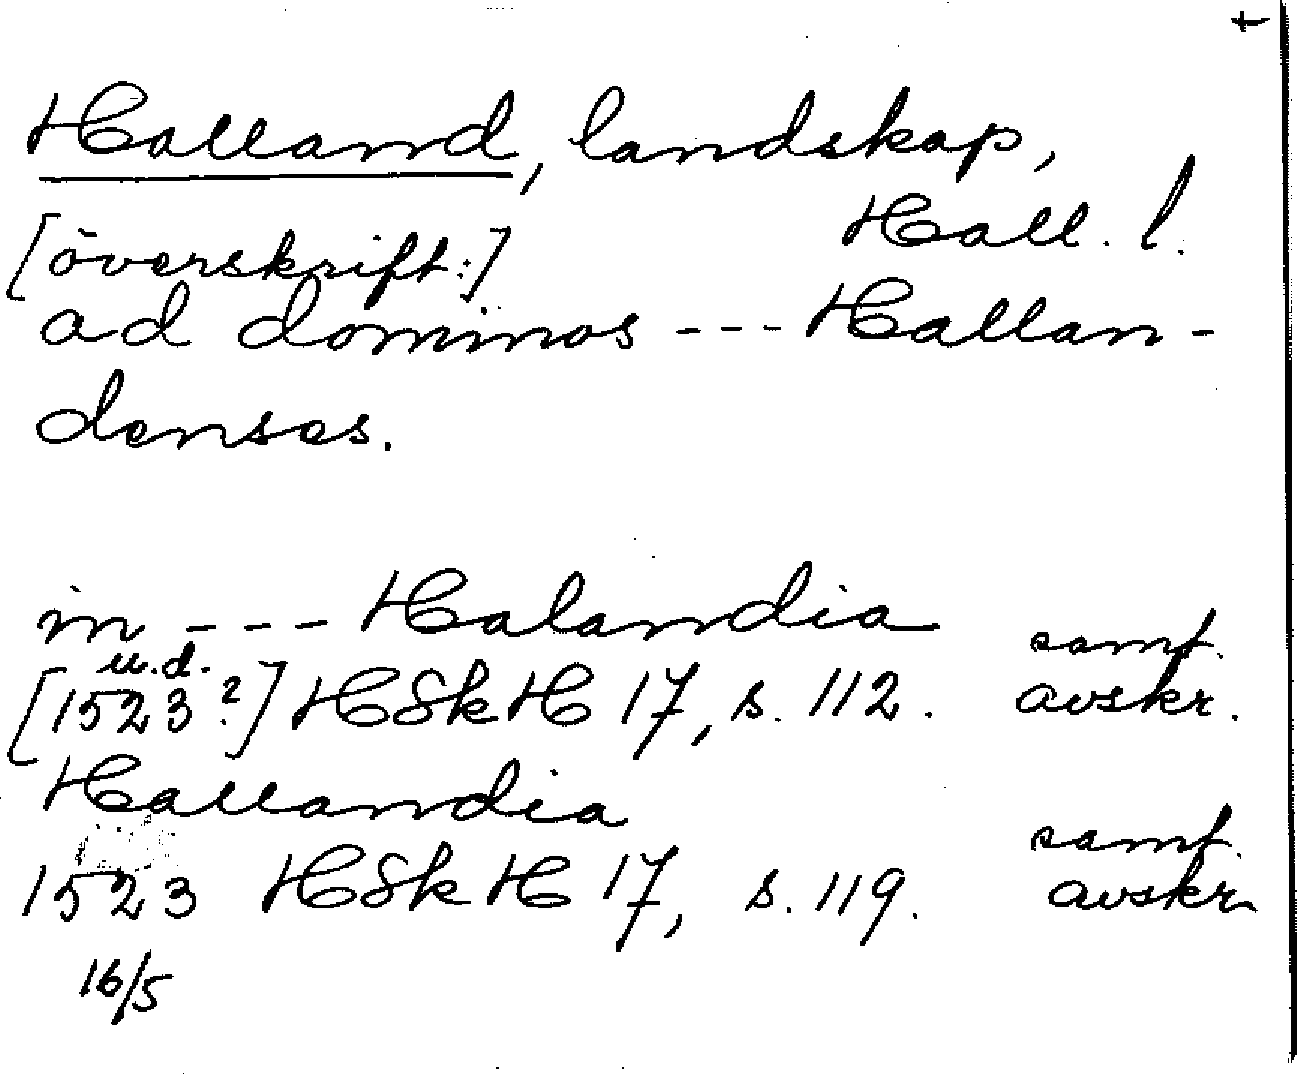 t
Halland, landskap,
Hall. l.
[överskrift:]
ad dominos --- Hallan-
denses.
in --- Halandia
u.d. samt.
[1523?] HSkH 17, s. 112. avskr.
Hallandia
samt.
1523 HSkH 17, s. 119. avskr
16/5